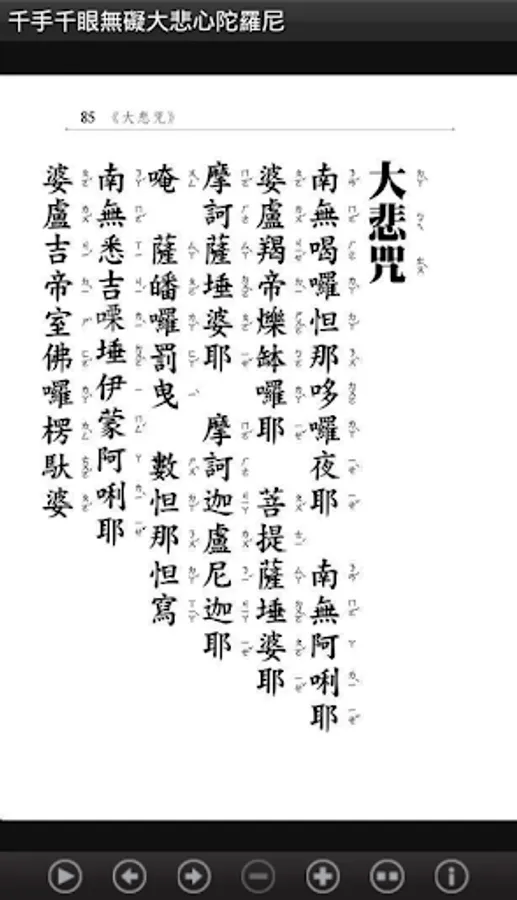 千手千眼無礙大悲心陀羅尼
85 《大悲咒》
大悲咒
南無喝囉怛那哆囉夜耶 南無阿唎耶
婆盧羯帝爍缽囉耶 菩提薩埵婆耶
摩訶薩埵婆耶 摩訶迦盧尼迦耶
唵 薩皤囉罰曳 數怛那怛寫
南無悉吉㗚埵伊蒙阿唎耶
婆盧吉帝室佛囉楞馱婆